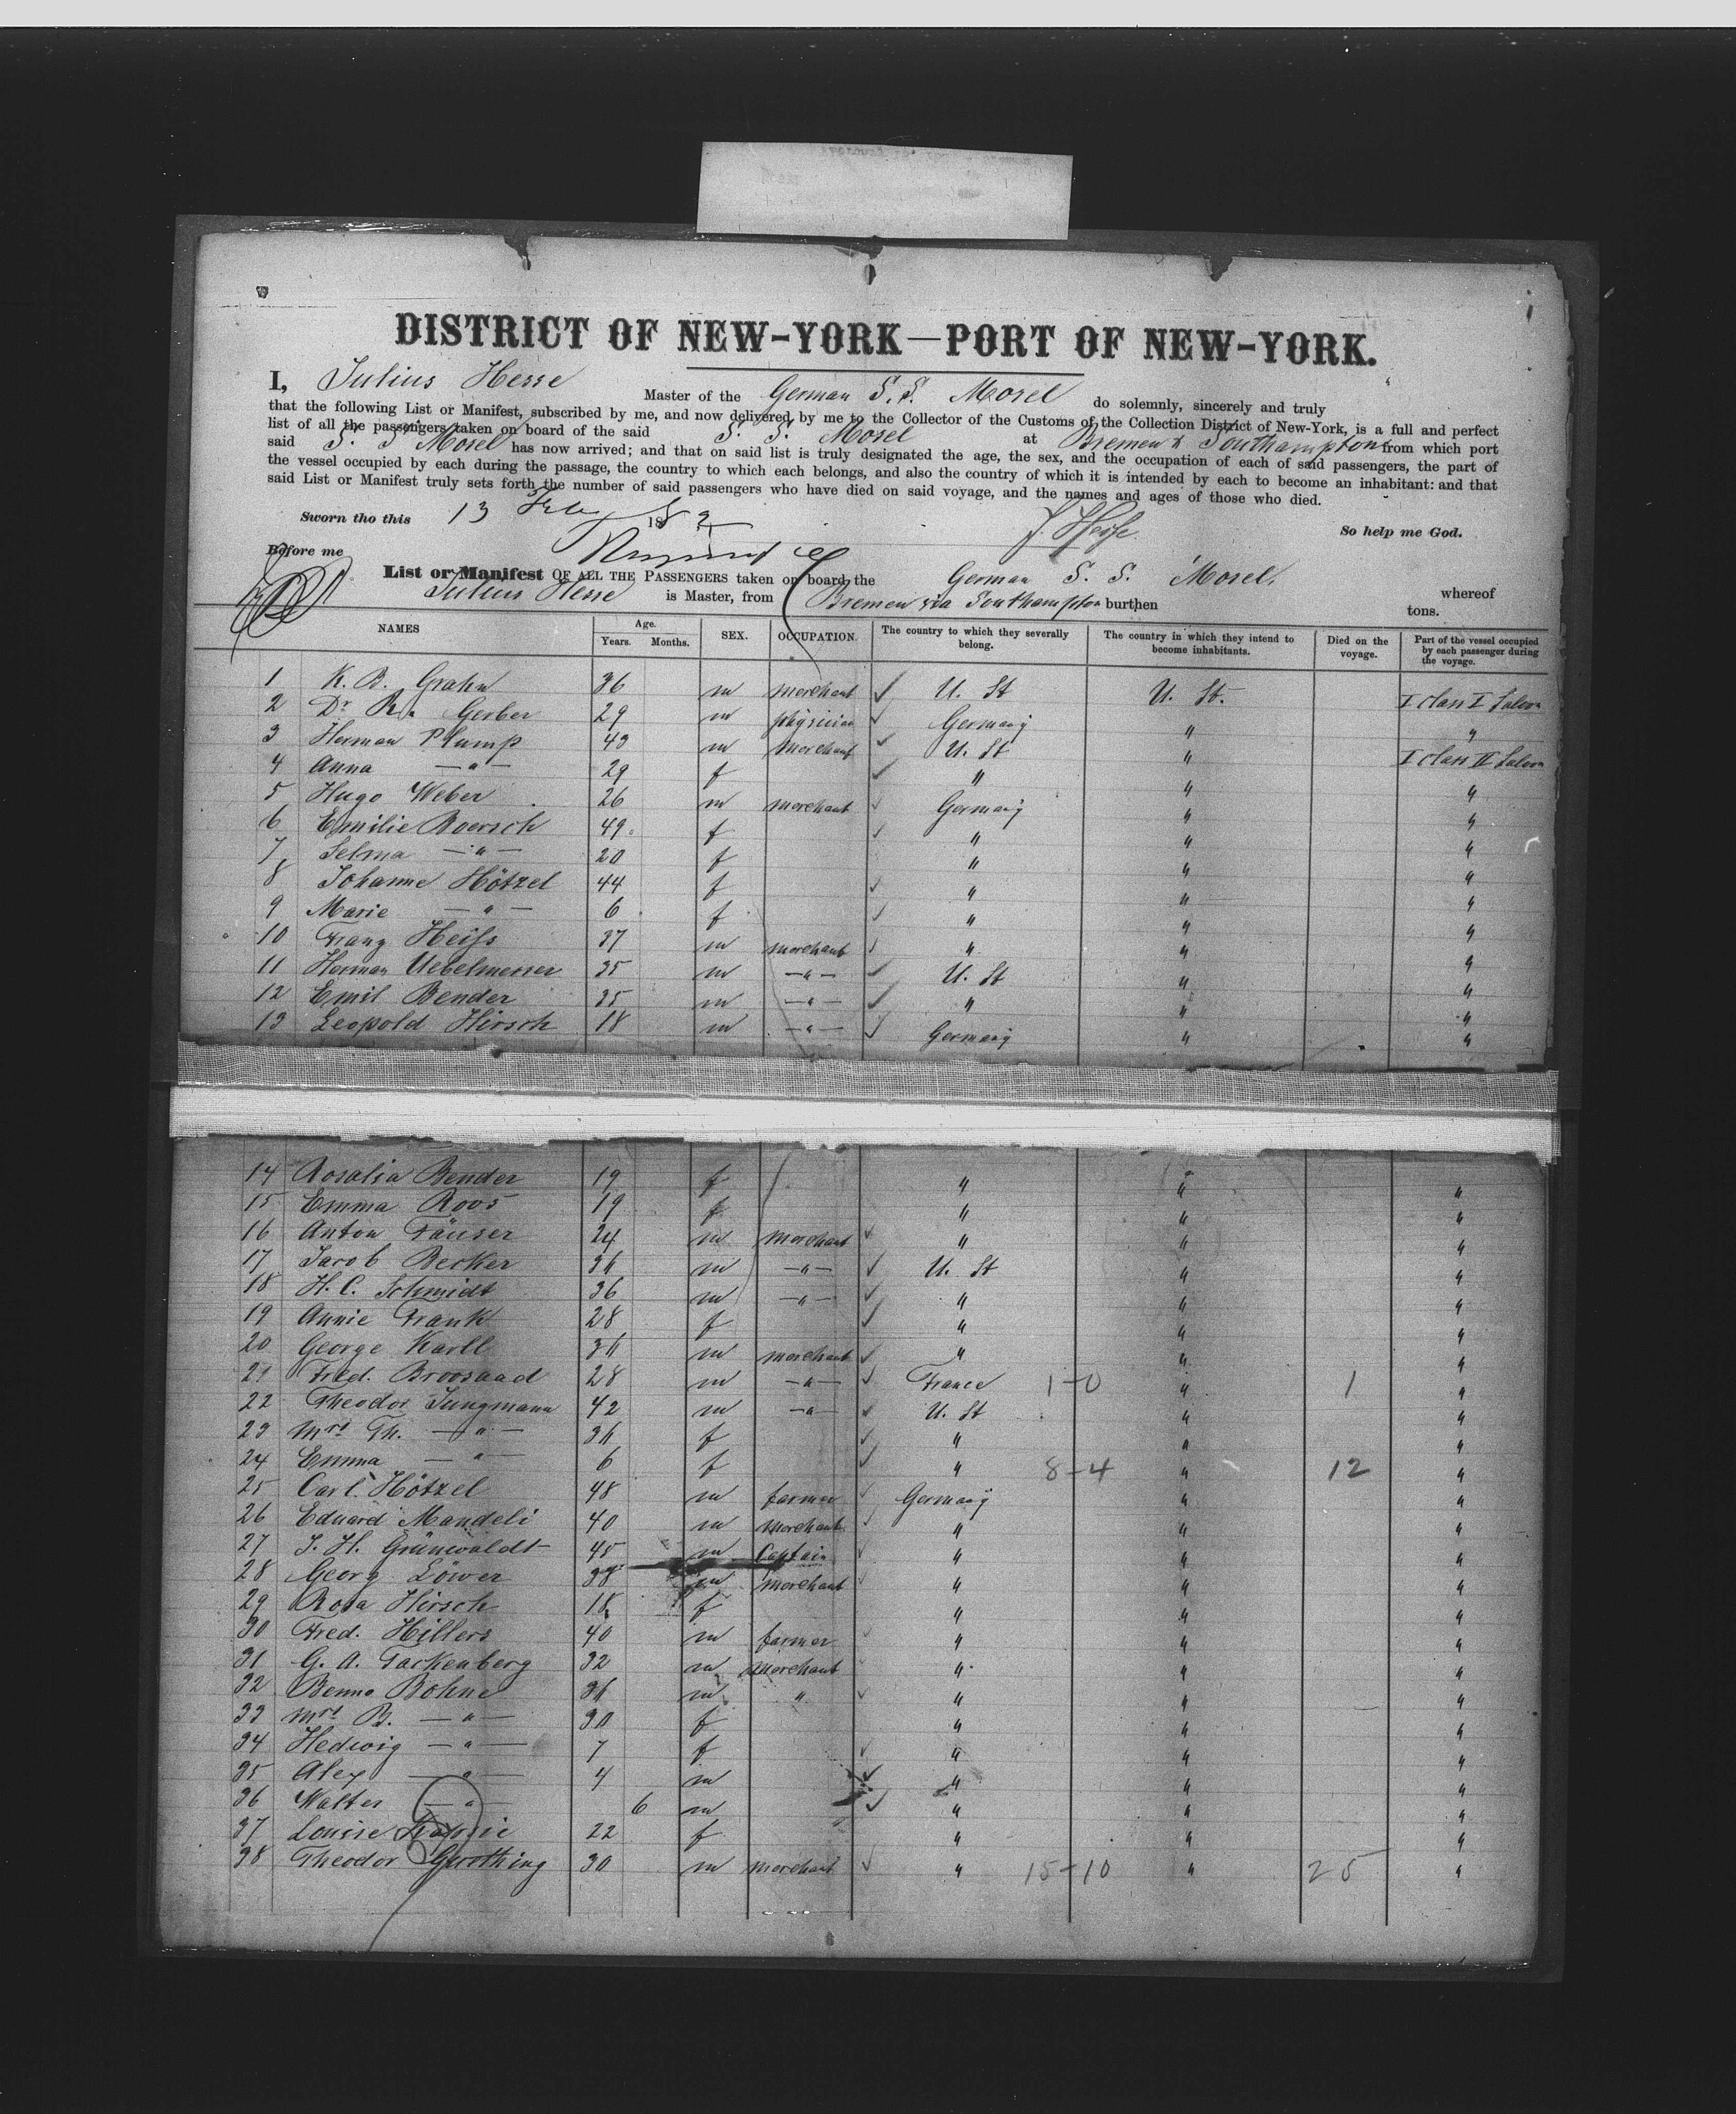 DISTRICT OF NEW-YORK—PORT OF NEW-YORK.
I, Julius Hesse Master of the German S. S. Mosel do solemnly, sincerely and truly
that the following List or Manifest, subscribed by me, and now delivered by me to the Collector of the Customs of the Collection District of New-York, is a full and perfect
list of all the passengers taken on board of the said S. S. Mosel at Bremen & Southampton from which port
said S. S Mosel has now arrived; and that on said list is truly designated the age, the sex, and the occupation of each of said passengers, the part of
the vessel occupied by each during the passage, the country to which each belongs, and also the country of which it is intended by each to become an inhabitant: and that
said List or Manifest truly sets forth the number of said passengers who have died on said voyage, and the names and ages of those who died.
Sworn tho this 13 Feby 1882 J. Hesse So help me God.
Before me
List or Manifest OF ALL THE PASSENGERS taken on board the German S. S. Mosel, whereof
Julius Hesse is Master, from Bremen via Southampton burthen tons.
NAMES Age. Years. Months. SEX. OCCUPATION. The country to which they severally belong. The country in which they intend to become inhabitants. Died on the voyage. Part of the vessel occupied by each passenger during the voyage.
1 K. B. Grahn 36 m merchant ✓ U. St U. St. I class I Saloon
2 Dr R. Gerber 29 m physician ✓ Germany " "
3 Herman Plump 43 m merchant ✓ U. St " I class II Saloon
4 Anna — " — 29 f ✓ " " "
5 Hugo Weber 26 m merchant ✓ Germany " "
6 Emilie Roersch 49 f ✓ " " "
7 Selma — " — 20 f " " "
8 Johanne Hötzel 44 f ✓ " " "
9 Marie — " — 6 f ✓ " " "
10 Franz Heiss 37 m merchant ✓ " " "
11 Herman Uebelmesser 35 m — " — ✓ U. St " "
12 Emil Bender 35 m — " — ✓ " " "
13 Leopold Hirsch 18 m — " — ✓ Germany " "
14 Rosalia Bender 19 f " " "
15 Emma Roos 19 f " " "
16 Anton Fäuser 24 m merchant ✓ " " "
17 Jacob Becker 36 m — " — ✓ U. St " "
18 H. C. Schmidt 36 m — " — ✓ " " "
19 Annie Frank 28 f ✓ " " "
20 George Karll 36 m merchant ✓ " " "
21 Fred. Broosaad 28 m — " — ✓ France 1-0 " 1 "
22 Theodor Jungmann 42 m — " — ✓ U. St " "
23 Mrs Th. — " — 36 f ✓ " " "
24 Emma — " — 6 f ✓ " 8-4 " 12 "
25 Carl Hötzel 48 m farmer ✓ Germany " "
26 Eduard Mandeli 40 m merchant ✓ " " "
27 J. H. Grünwaldt 45 m Captain ✓ " " "
28 Georg Löwer 38 m merchant ✓ " " "
29 Rosa Hirsch 18 f " " "
30 Fred. Hillers 40 m farmer ✓ " " "
31 G. A. Tackenberg 32 m merchant ✓ " " "
32 Benno Bohne 36 m " ✓ " " "
33 Mrs B. — " — 30 f " " "
34 Hedwig — " — 7 f ✓ " " "
35 Alex — " — 4 m ✓ " " "
36 Walter — " — 6 m ✓ " " "
37 Louise 22 f " " "
38 Theodor Gerothing 30 m merchant ✓ " 15-10 " 25 "